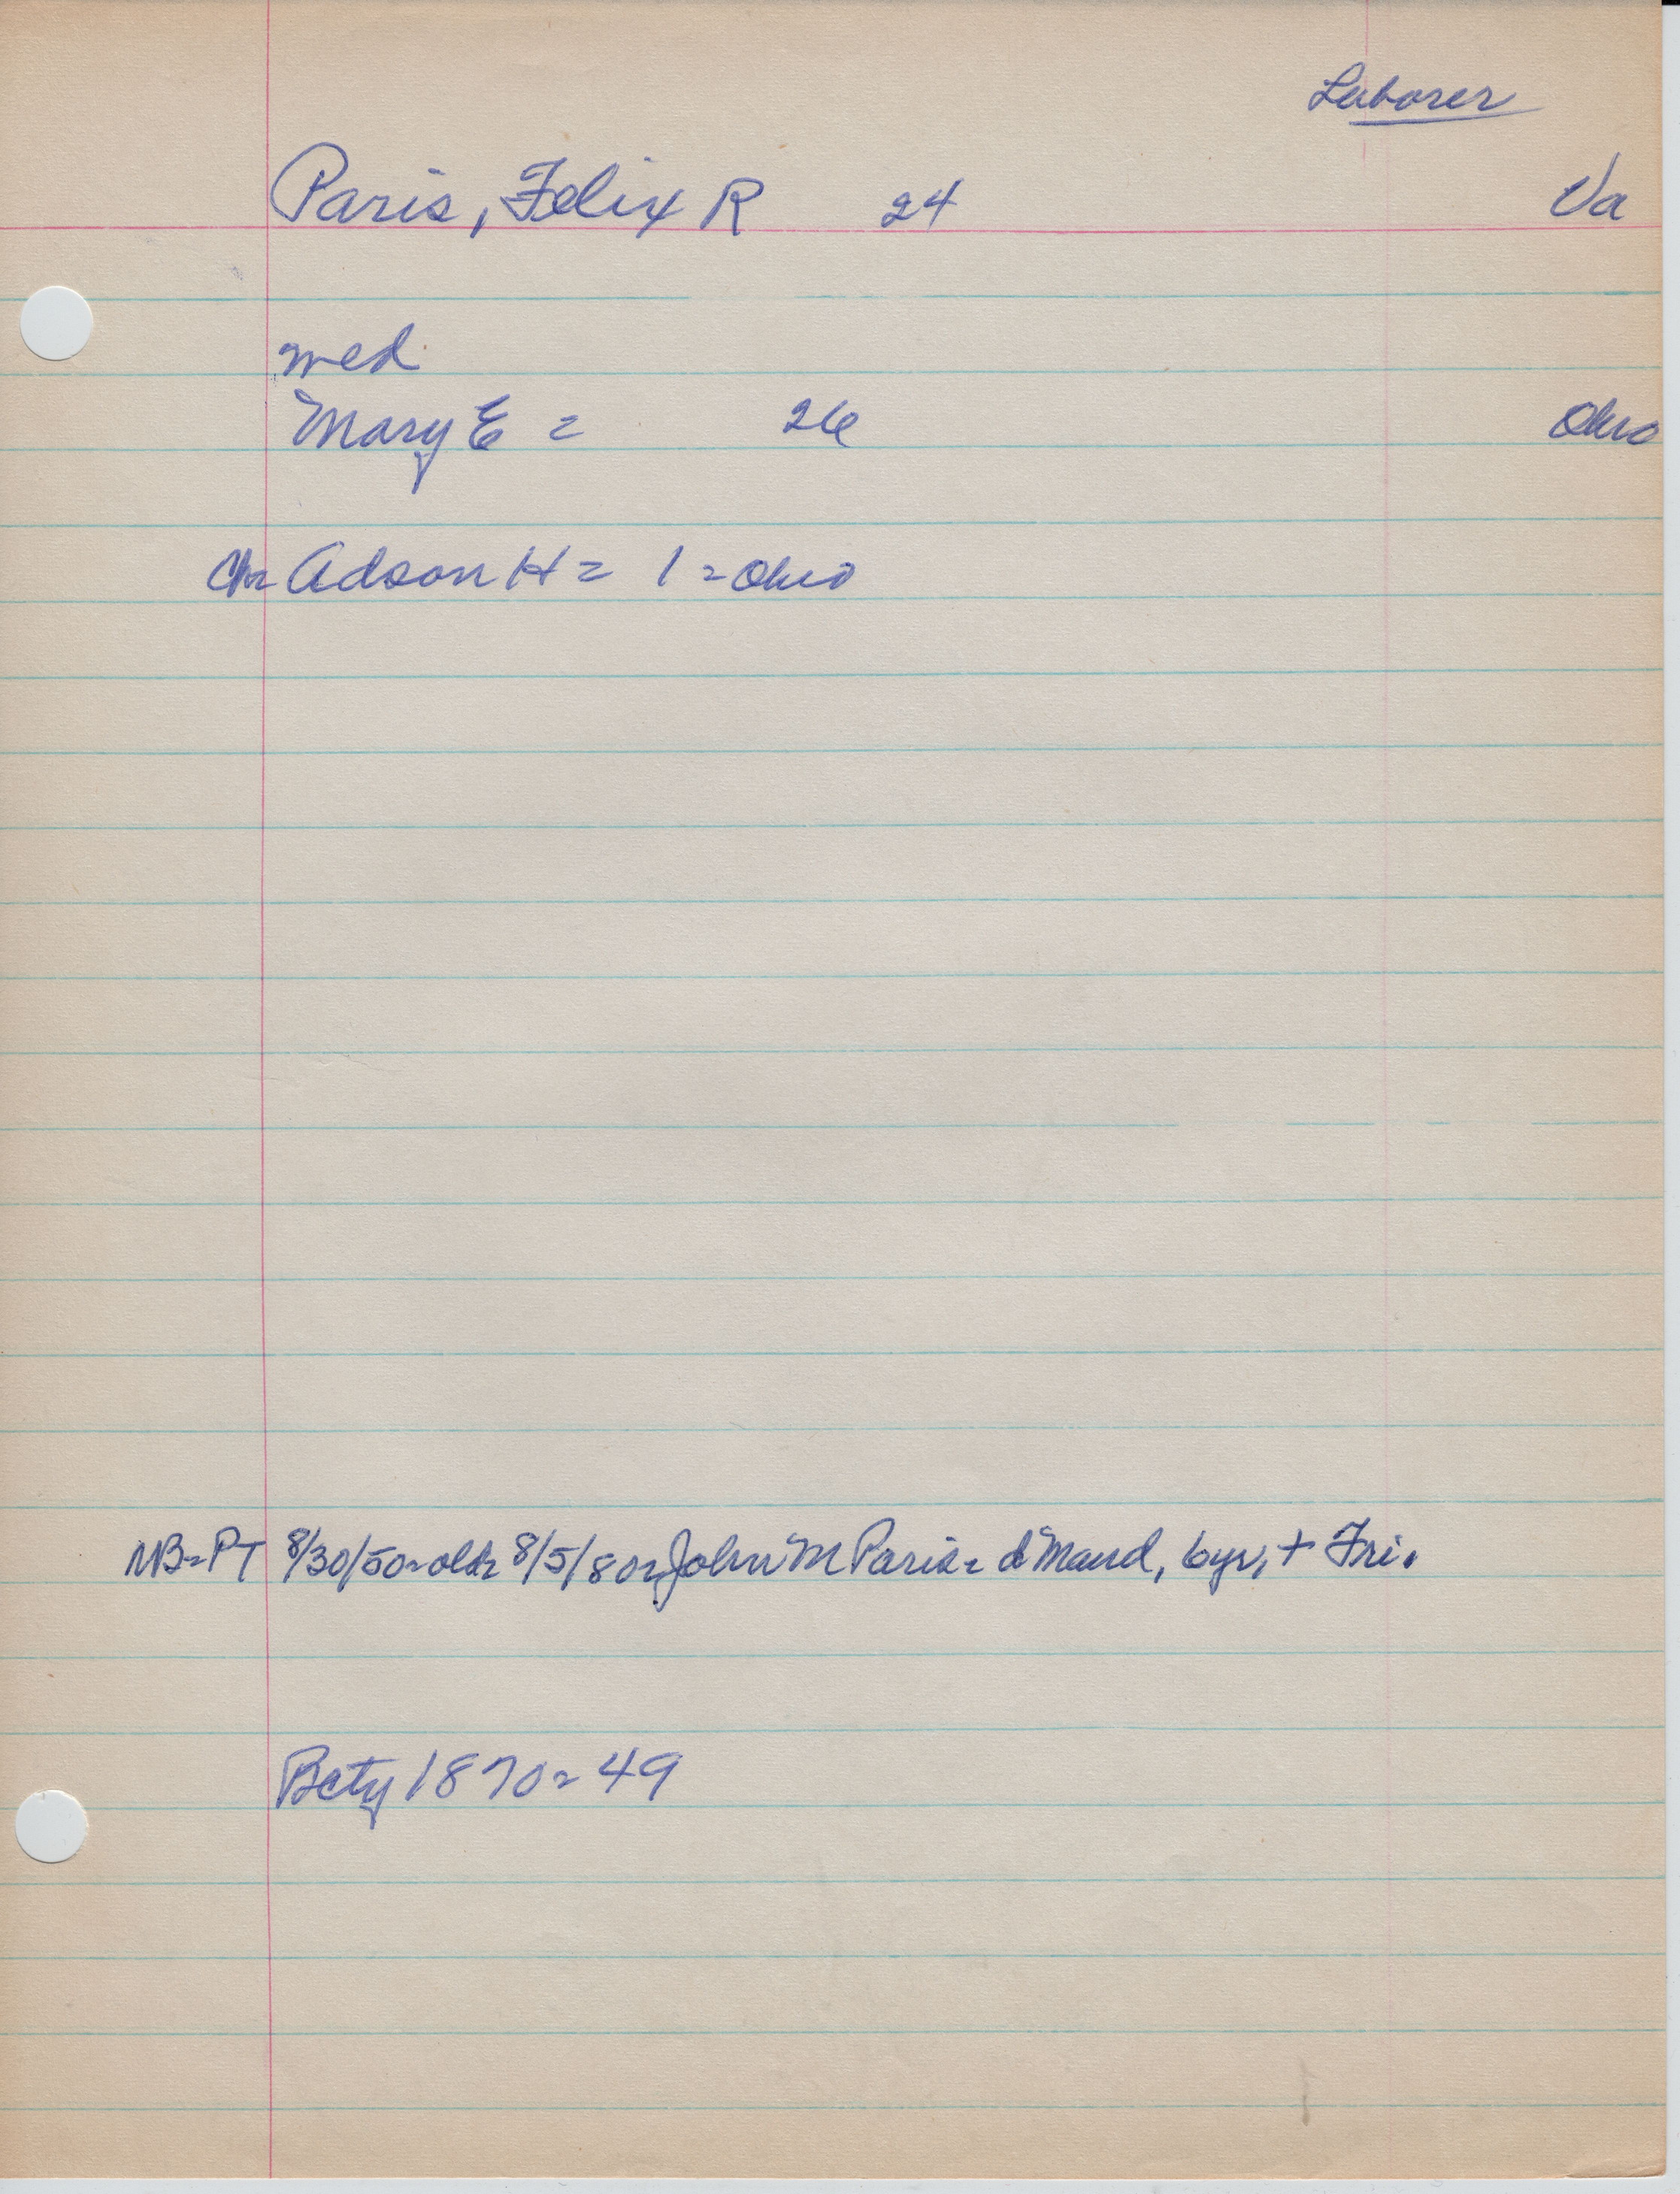 Laborer
Paris, Felix R 24 Va
med
Mary E = 26 Ohio
Ch= Adson H = 1 = Ohio
NB=PT 8/30/50=old= 8/5/80=John M Paris= d Maud, 6yr, + Fri.
Bcty 1870= 49